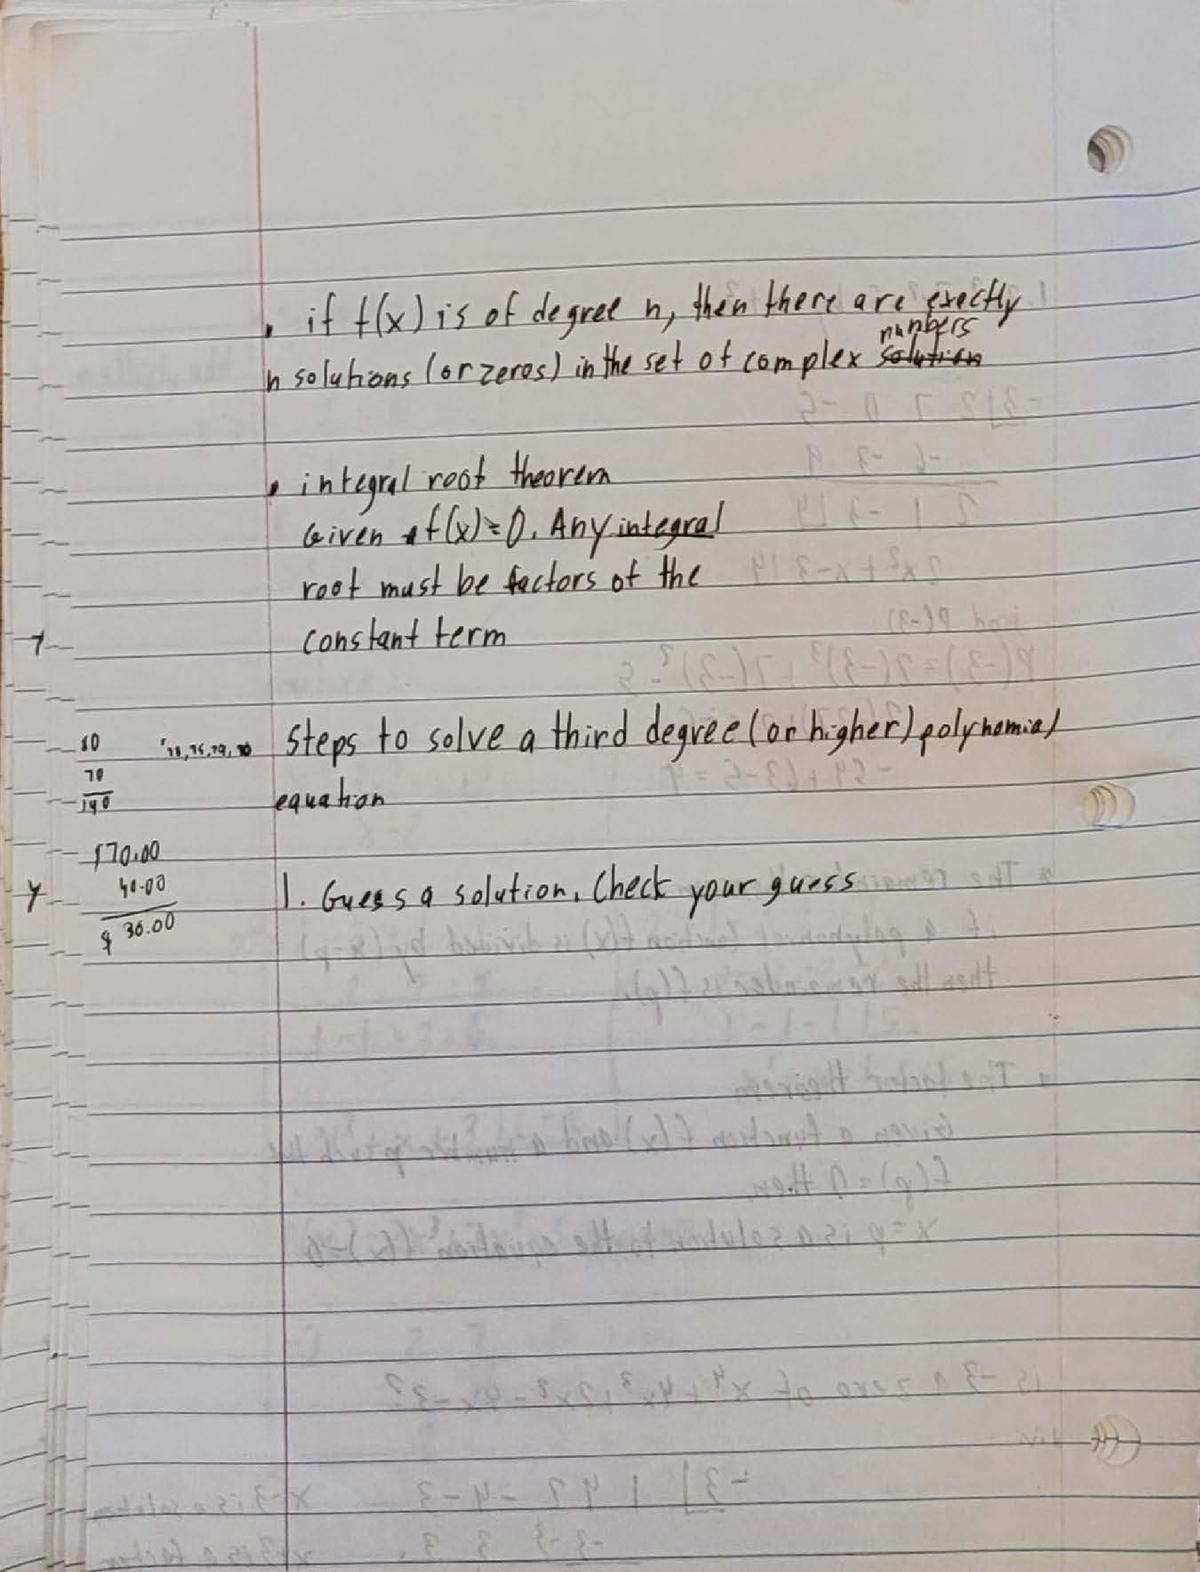 • if f(x) is of degree n, then there are exectly
numbers
n solutions (or zeros) in the set of complex solution
• integral root theorem
Given f(x)=0. Any integral
root must be factors of the
constant term
Steps to solve a third degree (or higher) polynomial
equation
80
70
140
$70.00
40.00
$ 30.00
1. Guess a solution, Check your guess